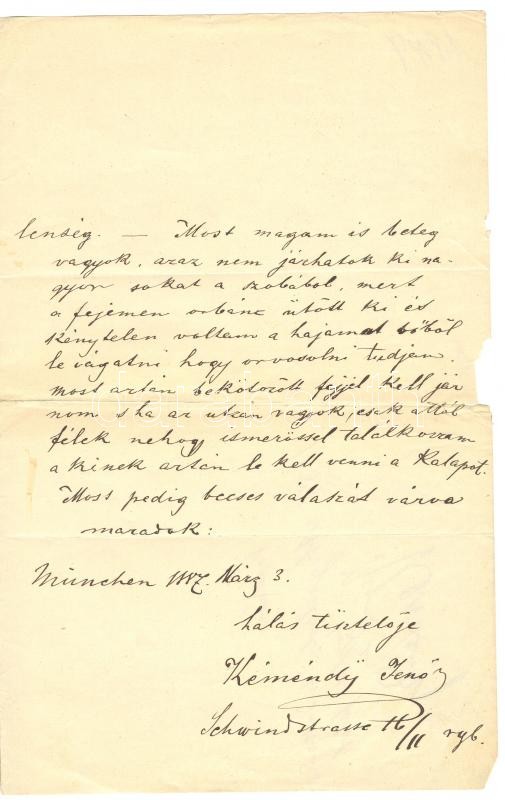 lenség. — Most magam is beteg
vagyok, azaz nem járhatok ki na-
gyon sokat a szobából, mert
a fejemen orbánc ütött ki és
kénytelen voltam a hajamat bőből
levágatni hogy orvosolni tudjam.
most aztán bekötözött fejjel kell jár
nom s ha az utcán vagyok, csak attól
félek nehogy ismerőssel találkozzam
a kinek aztán le kell venni a Kalapot.
Most pedig becses válaszát várva
maradok:
München 1887. März 3.
hálás tisztelője
Kéméndÿ Jenő
Schwindstrasse 16/II